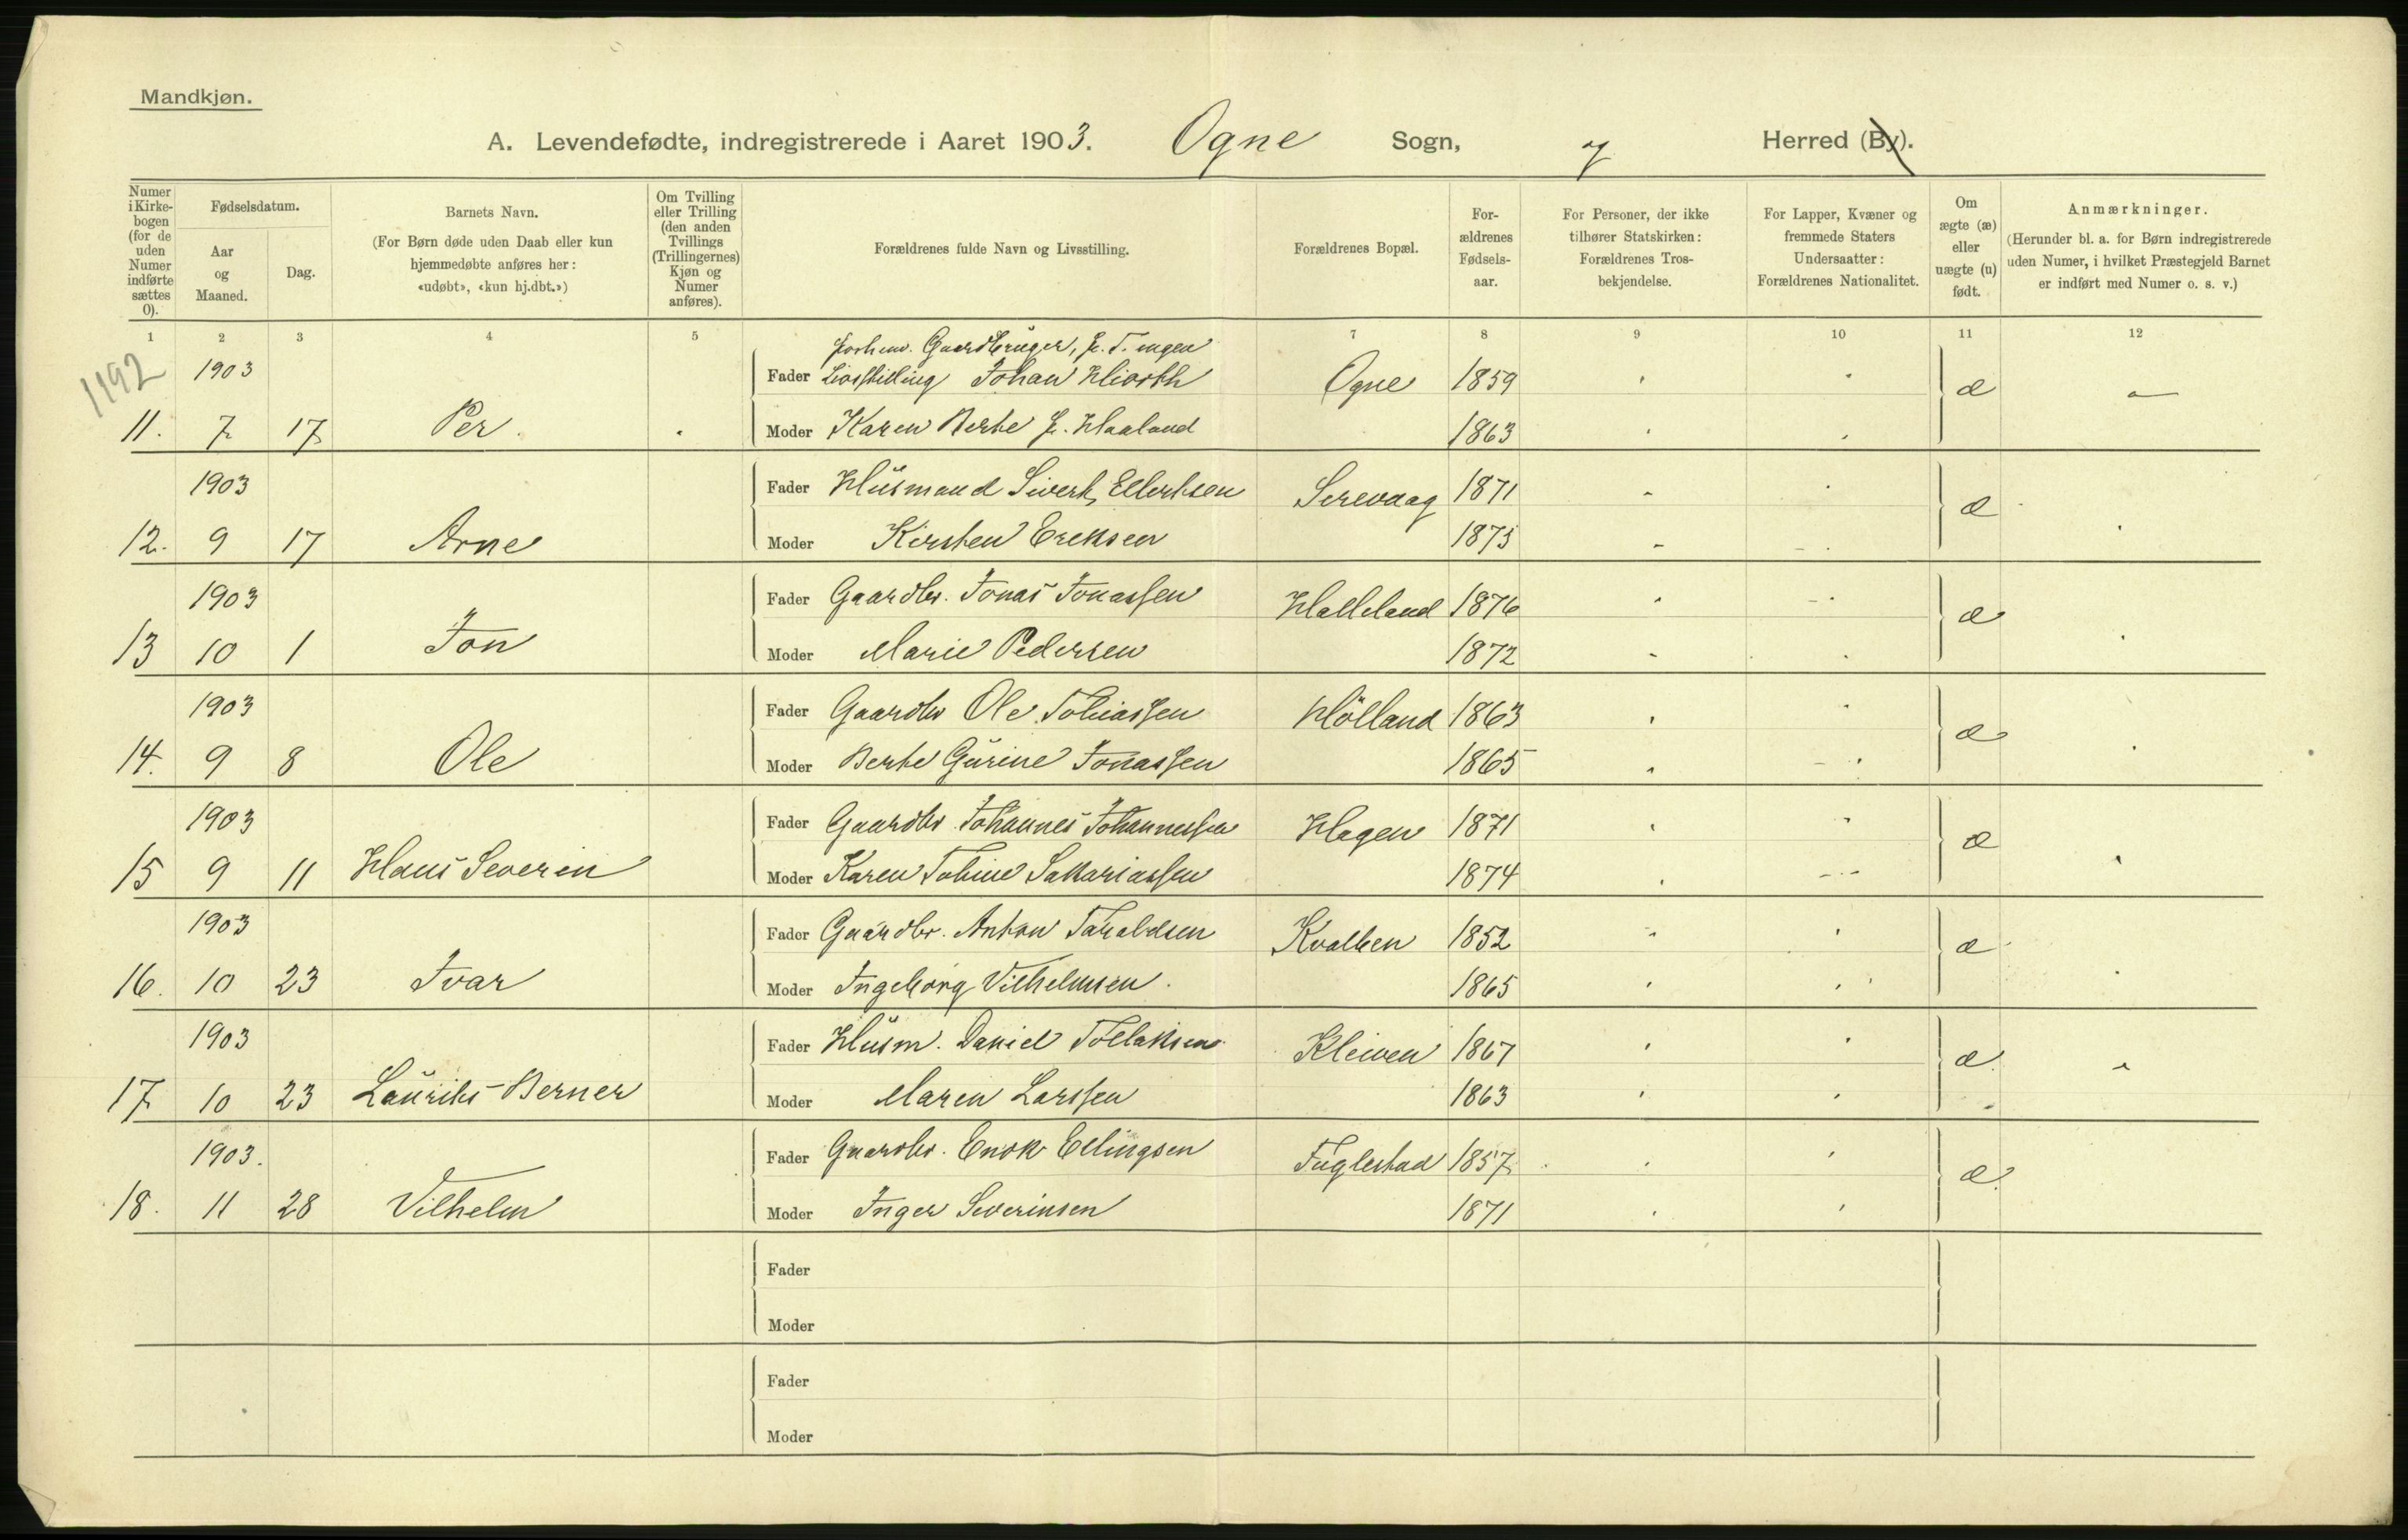 Mandkjøn.
A. Levendefødte, indregistrerede i Aaret 1903. Ogne Sogn, og Herred (By).
Numer i Kirke-bogen (for de uden Numer indførte sættes 0).
Fødselsdatum.
Aar og Maaned.
Dag.
Barnets Navn.
(For Børn døde uden Daab eller kun hjemmedøbte anføres her: «udøbt», «kun hj.dbt.»)
Om Tvilling eller Trilling (den anden Tvillings (Trillingernes) Kjøn og Numer anføres).
Forældrenes fulde Navn og Livsstilling.
Forældrenes Bopæl.
For-ældrenes Fødsels-aar.
For Personer, der ikke tilhører Statskirken: Forældrenes Tros-bekjendelse.
For Lapper, Kvæner og fremmede Staters Undersaatter: Forældrenes Nationalitet.
Om ægte (æ) eller uægte (u) født.
Anmærkninger.
(Herunder bl. a. for Børn indregistrerede uden Numer, i hvilket Præstegjeld Barnet er indført med Numer o. s. v.)
1 2 3 4 5 7 8 9 10 11 12
1192
Gaardbruger, f. T. ingen
1903 Fader Livsstilling Johan Hiorth Ogne 1859 æ
11. 7 17 Per Moder Karen Berte f. Haaland 1863
1903 Fader Husmand Sivert Ellertsen Serevaag 1871 æ
12. 9 17 Arne Moder Kirsten Ereksen 1873
1903 Fader Gaardbr. Jonas Jonassen Halleland 1876 æ
13 10 1 Jon Moder Marie Pedersen 1872
1903 Fader Gaardbr Ole Tobiassen Hölland 1863 æ
14. 9 8 Ole Moder Berte Gurine Jonassen 1865
1903 Fader Gaardbr Johannes Johannessen Hagen 1871 æ
15 9 11 Hans Severin Moder Karen Tobine Sakariassen 1874
1903 Fader Gaardbr. Anton Taraldsen Kvalben 1852 æ
16. 10 23 Ivar Moder Ingeborg Vilhelmsen. 1865
1903 Fader Husm. Daniel Tollaksen Kleiven 1867 æ
17 10 23 Lauritz Berner Moder Maren Larssen 1863
1903. Fader Gaardbr. Enok Ellingsen Fuglestad 1857 æ
18. 11 28 Vilhelm Moder Inger Severinsen 1871
Fader
Moder
Fader
Moder